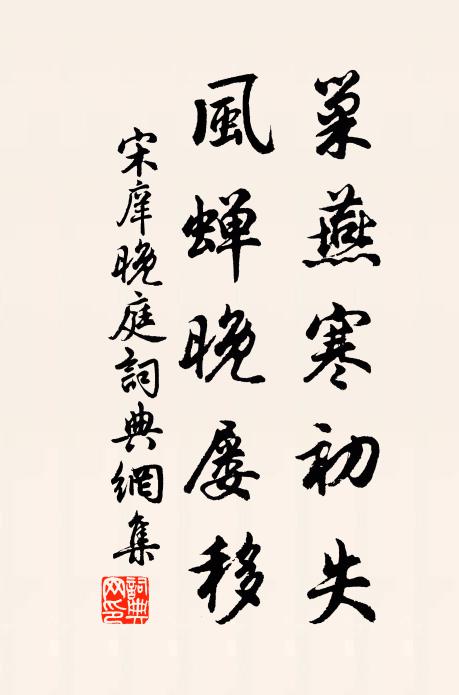 巢燕寒初失
風蟬晚屡移
宋庠晚庭詞典網集
詞典網印